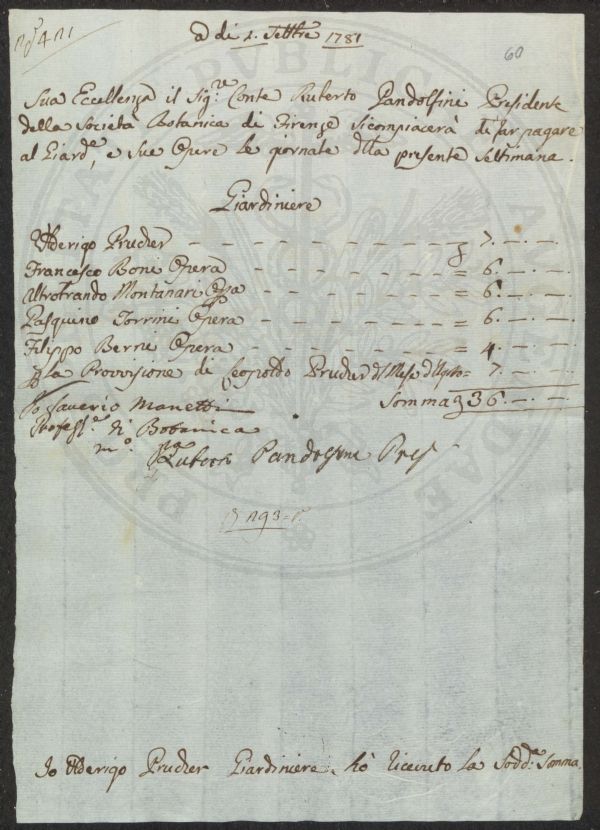 a di 1. Settre 1781
60
Sua Eccellenza il Sigre. Conte Ruberto Pandolfini Presidente
della Società Botanica di Firenze si compiacerà di far pagare
al Giarde, e sue Opere le giornate dlla presente Settimana.
Giardiniere
Ulderigo Prucher = 7. — . —
Francesco Boni Opera = 6. — . —
Altrotrando Montanari Opa = 6. — . —
Pasquino Torrini Opera = 6. — . —
Filippo Berni Opera = 4. — . —
La Provisione di Leopoldo Prucher dl Mese d'Agsto = 7. — . —
Io Saverio Manetti Somma 36. — . —
Professe. di Botanica
mo.
Pandolfini Pres
Io Ulderigo Prucher Giardiniere hò ricevuto la Sodda Somma.